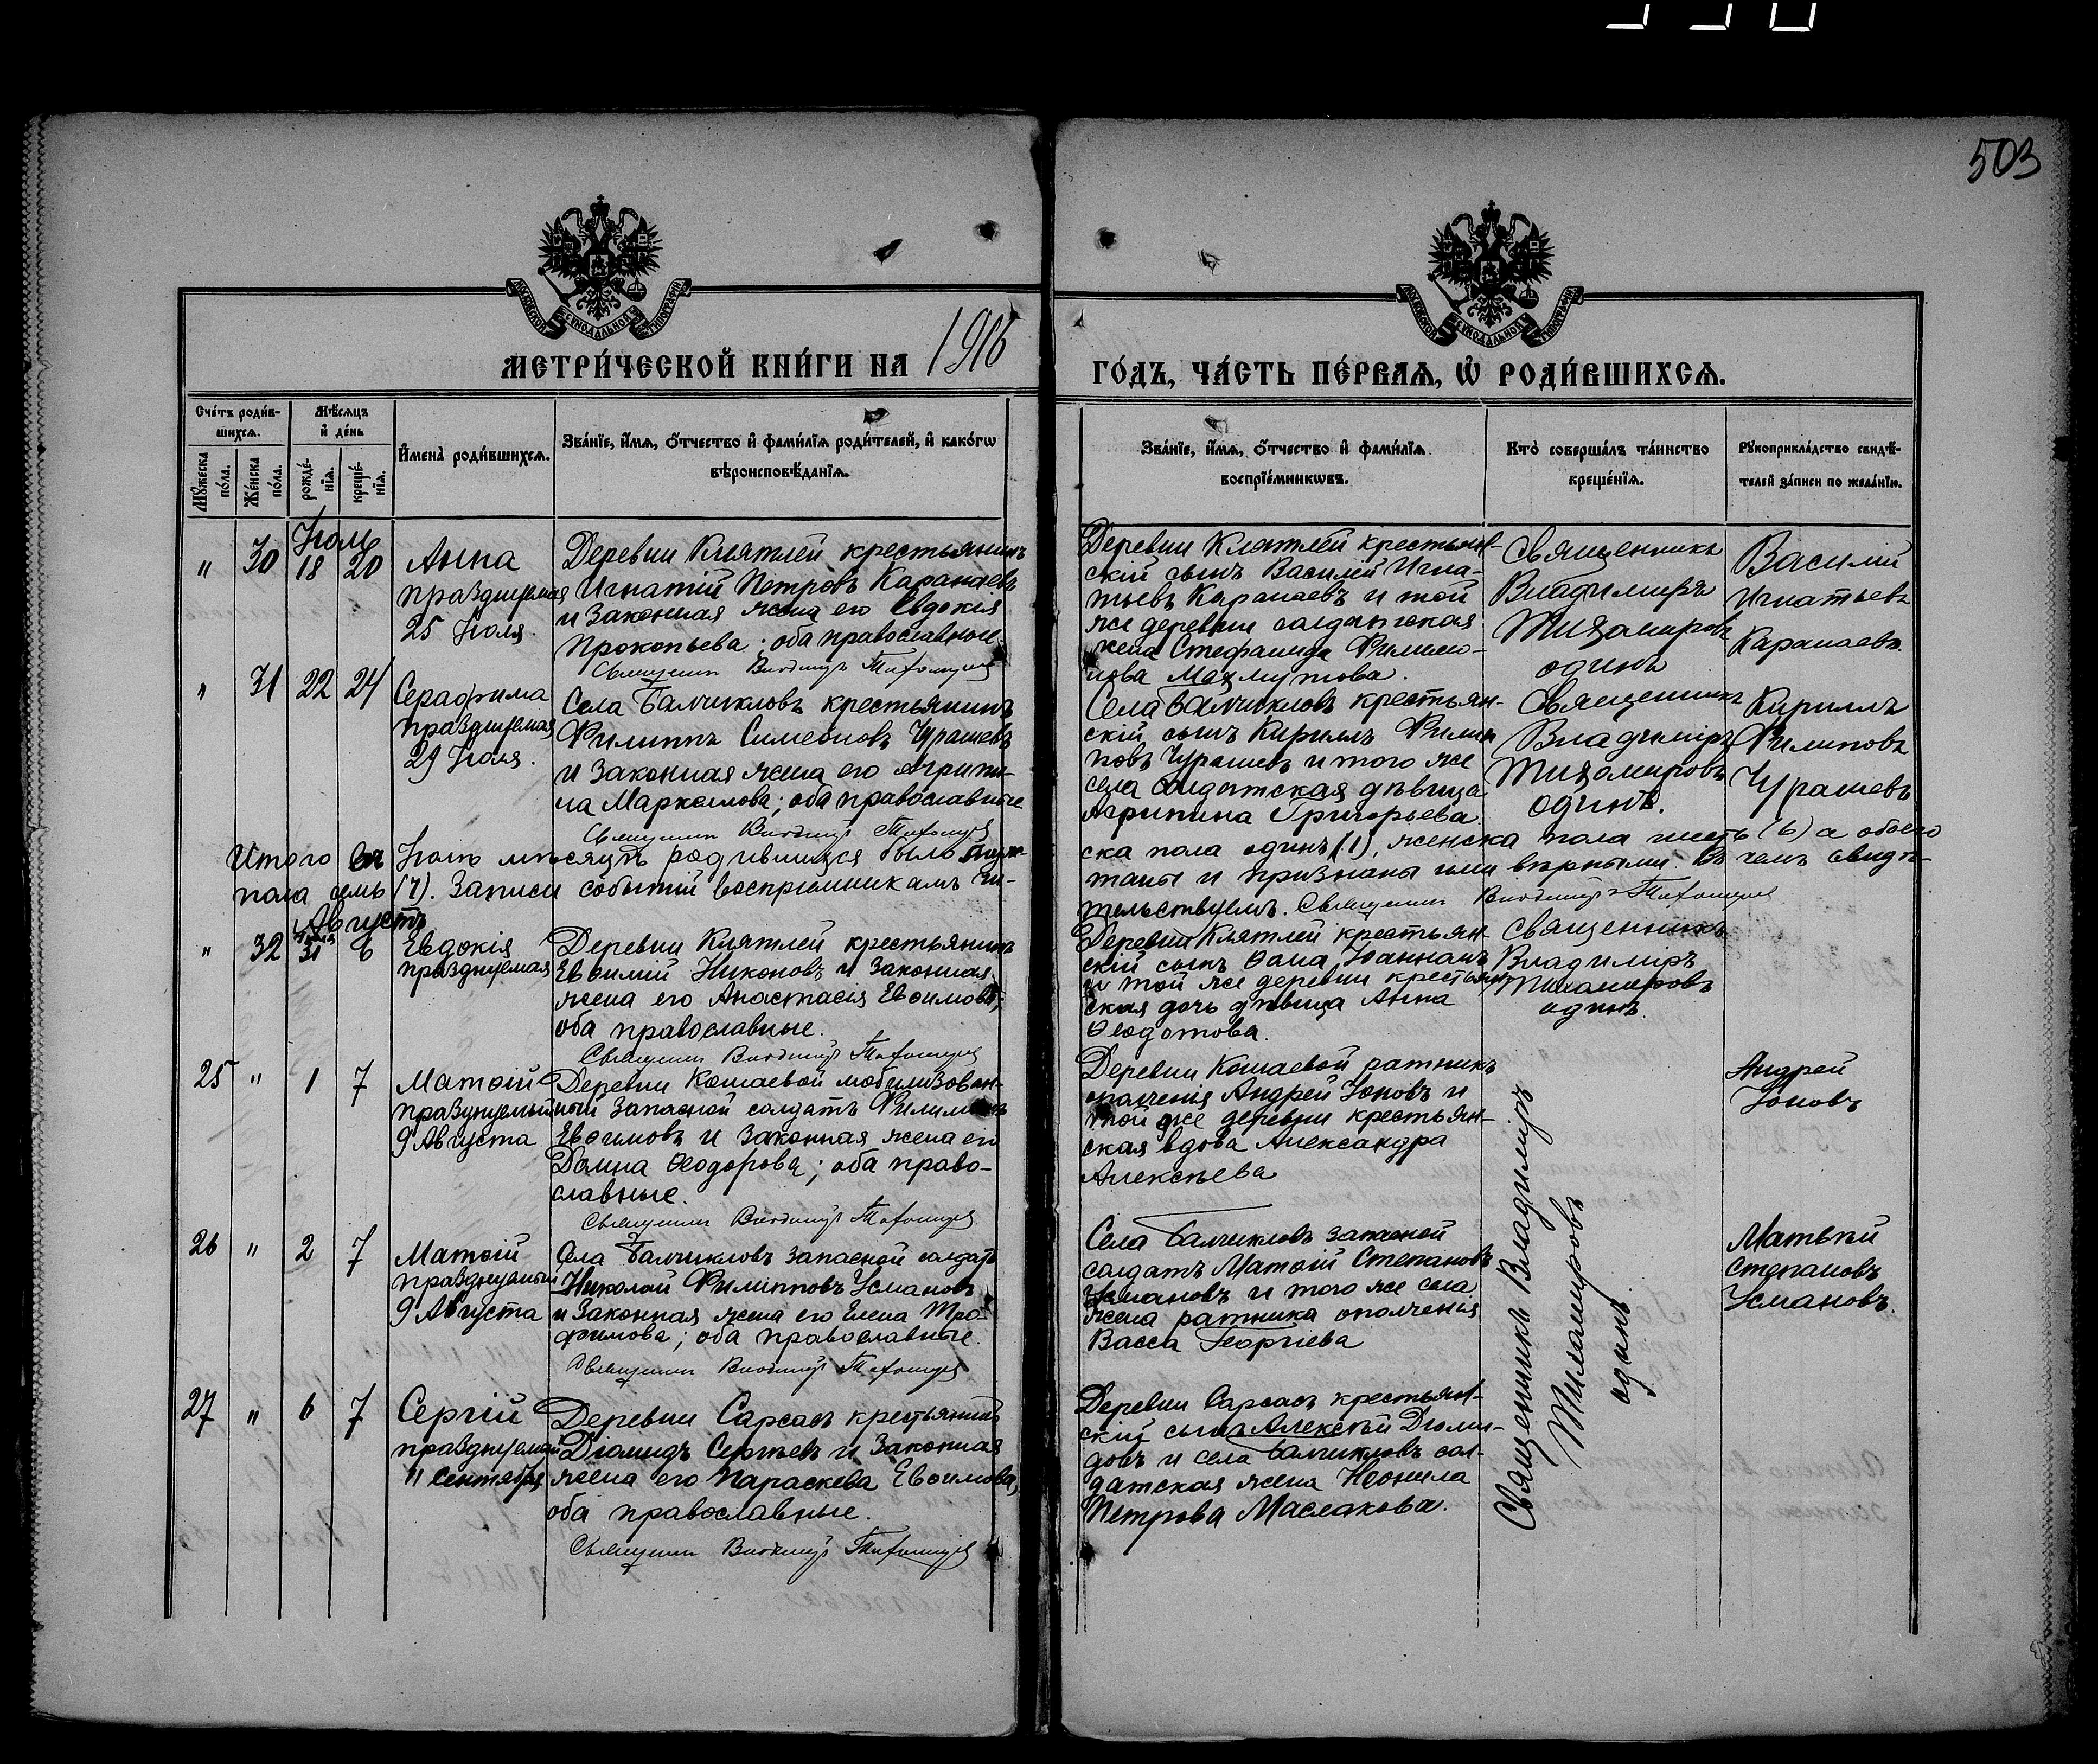 503
МОСКОВСКОЙ СѴНОДАЛЬНОЙ ТИПОГРАФІИ
МОСКОВСКОЙ СѴНОДАЛЬНОЙ ТИПОГРАФІИ
МЕТРИ́ЧЕСКОЙ КНИ́ГИ НА 1916
ГО́ДЪ, ЧА́СТЬ ПЕ́РВАѦ, Ѡ҆ РОДИ́ВШИХСѦ.
Сче́тъ роди́в-
шихсѧ.
Мѣ́сѧцъ
и҆ де́нь
Мꙋ́жеска
по́ла.
Же́нска
по́ла.
рожде́-
нїѧ.
креще́-
нїѧ.
И҆мена̀ роди́вшихсѧ.
Зва́нїе, и҆́мѧ, ѻ҆́тчество и҆ фами́лїѧ роди́телей, и҆ како́гѡ
вѣроисповѣ́данїѧ.
Зва́нїе, и҆́мѧ, ѻ҆́тчество и҆ фами́лїѧ
воспрїе́мникѡвъ.
Кто̀ соверша́лъ та́инство
креще́нїѧ.
Рꙋкоприкла́дство свидѣ́-
телей за́писи по жела́нїю.
Іюль
" 30 18 20
Анна
празднуемая
25 Іюля.
Деревни Клятлей крестьянинъ
Игнатій Петровъ Каранаевъ
и законная жена его Евдокія
Прокопьева; оба православные
Священник Владимір Тихомиров
Деревни Клятлей крестьян-
скій сынъ Василій Игна-
тьевъ Каранаевъ и той
же деревни солдатская
жена Стефанида Филимо-
нова Махмутова.
Священникъ
Владиміръ
Тихомировъ
одинъ
Василій
Игнатьевъ
Каранаевъ.
" 31 22 24
Серафима
празднуемая
29 Іюля.
Села Балчикловъ крестьянинъ
Филиппъ Симеоновъ Чурашевъ
и законная жена его Агрипи-
на Маркелова; оба православные
Священник Владимір Тихомиров
Села Балчикловъ крестьян-
скій сынъ Кириллъ Филип
повъ Чурашев и того же
села солдатская дѣвица
Агрипина Григорьева
Священникъ
Владиміръ
Тихомировъ
одинъ.
Кириллъ
Филиповъ
Чурашевъ
Итого въ Іюль мѣсяцѣ родившихся было муж-
ска пола одинъ (1), женска пола шесть (6) а обоего
пола семь (7). Записи событій воспріемникамъ чи-
таны и признаны ими вѣрными. Въ чемъ свидѣ-
тельствуемъ. Священник Владимір Тихомиров
Августъ
" 32 31 6
Евдокія
празднуемая
Деревни Клятлей крестьянинъ
Евѳимій Никоновъ и законная
жена его Анастасія Евѳимова;
оба православные.
Священник Владимір Тихомиров
Деревни Клятлей крестьян-
скій сынъ Ѳома Іоанновъ
и той же деревни крестьян
ская дочь дѣвица Анна
Ѳеодотова.
Священникъ
Владиміръ
Тихомировъ
одинъ.
25 " 1 7
Матѳій
празднуемый
9 Августа
Деревни Кошаевой мобилизован-
ный запасной солдатъ Филимонъ
Евѳимовъ и законная жена его
Домна Ѳеодорова; оба право-
славные.
Священник Владимір Тихомиров
Деревни Кошаевой ратникъ
ополченія Андрей Іоновъ и
той же деревни крестьян-
ская вдова Александра
Алексѣева
Андрей
Іоновъ
26 " 2 7
Матѳій
празднуемый
9 Августа
Села Балчикловъ запасной солдатъ
Николай Филипповъ Усмановъ
и законная жена его Елена Тро-
фимова; оба православные.
Священник Владимір Тихомиров
Села Балчикловъ запасной
солдатъ Матѳій Степановъ
Усмановъ и того же села
жена ратника ополченія
Васса Георгіева
Священникъ Владиміръ
Тихомировъ
одинъ
Матьвѣй
Степановъ
Усмановъ.
27 " 6 7
Сергій
празднуемый
11 Сентября
Деревни Сарсасъ крестьянинъ
Діомидъ Сергѣевъ и законная
жена его Параскева Евѳимова,
оба православные.
Священник Владимір Тихомиров
Деревни Сарсасъ крестьян-
скій сынъ Алексѣй Дюми-
довъ и села Балчикловъ сол-
датская жена Неонила
Петрова Маслакова.